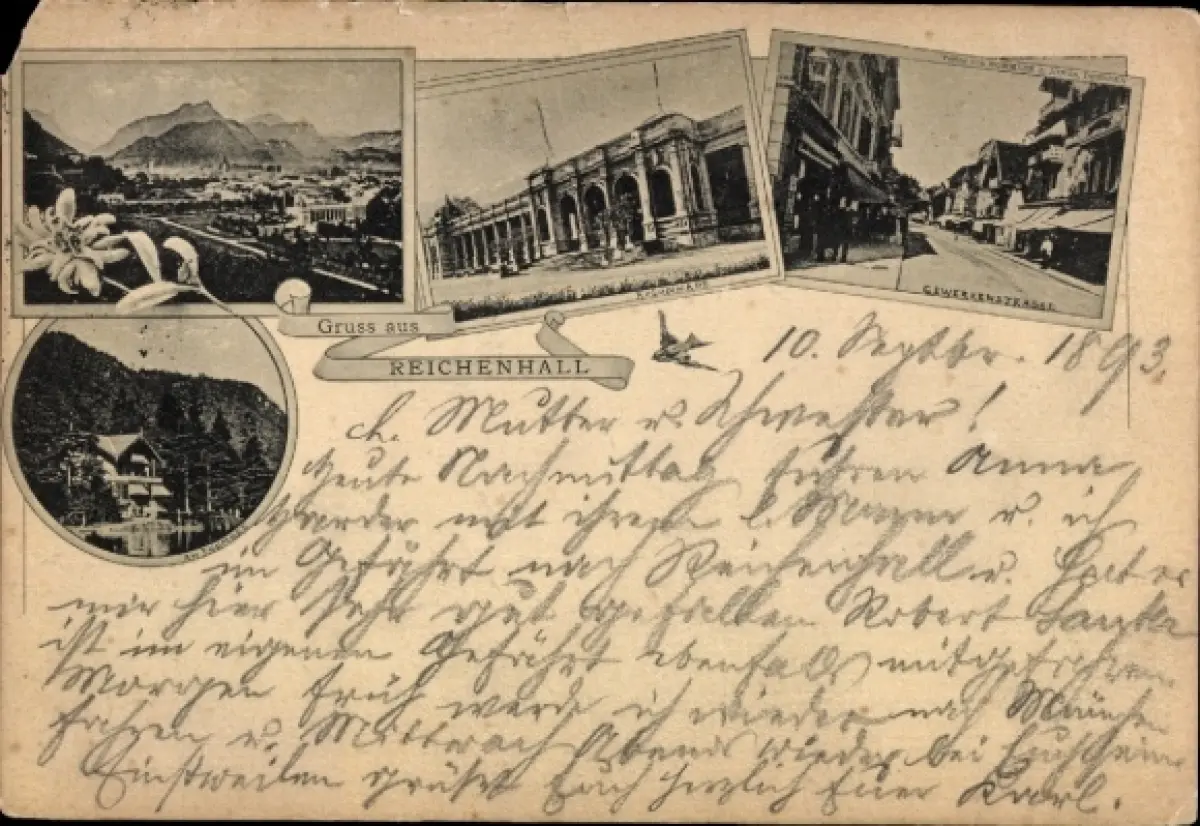 Gruss aus
REICHENHALL
GEWERKENSTRASSE
10. Septbr. 1893.
L. Mutter u. Schwester!
Heute Nachmittag fuhren Anna
mit ihrem l. Mann u. ich
im Gefährt nach Reichenhall u. hat es
mir hier sehr gut gefallen Robert
ist im eigenen Gefährt ebenfalls mitgefahren
Morgen früh werde ich wieder nach München
fahren u. Mittwoch Abend wieder bei Euch sein
Einstweilen grüßt Euch herzlich Euer Karl.